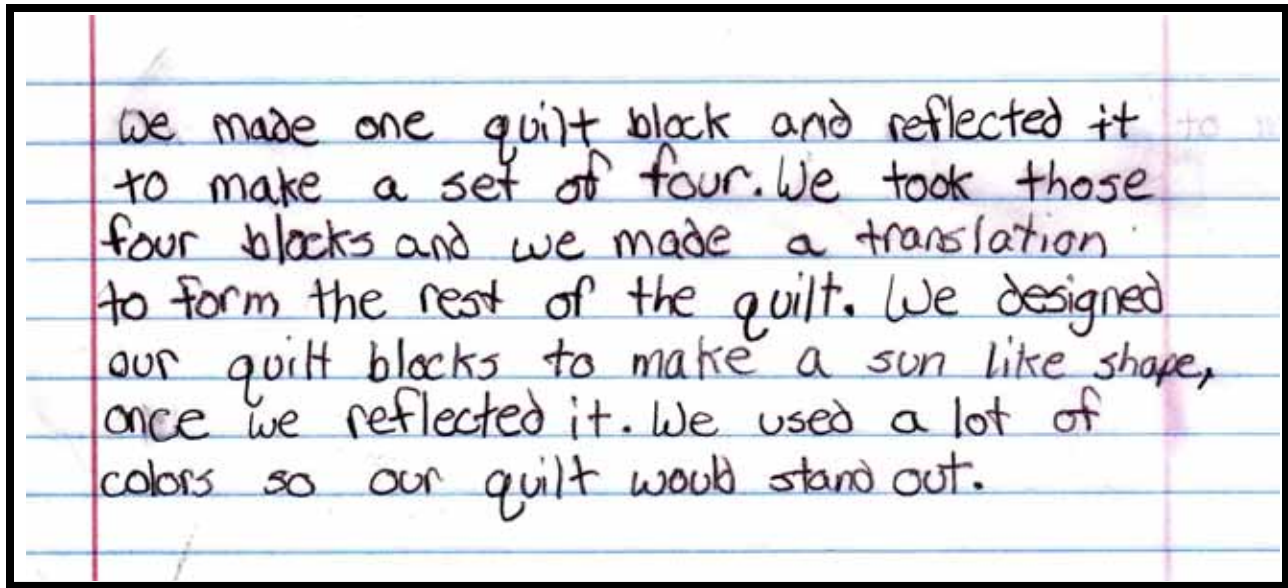 We made one quilt block and reflected it
to make a set of four. We took those
four blocks and we made a translation
to form the rest of the quilt. We designed
our quilt blocks to make a sun like shape,
once we reflected it. We used a lot of
colors so our quilt would stand out.